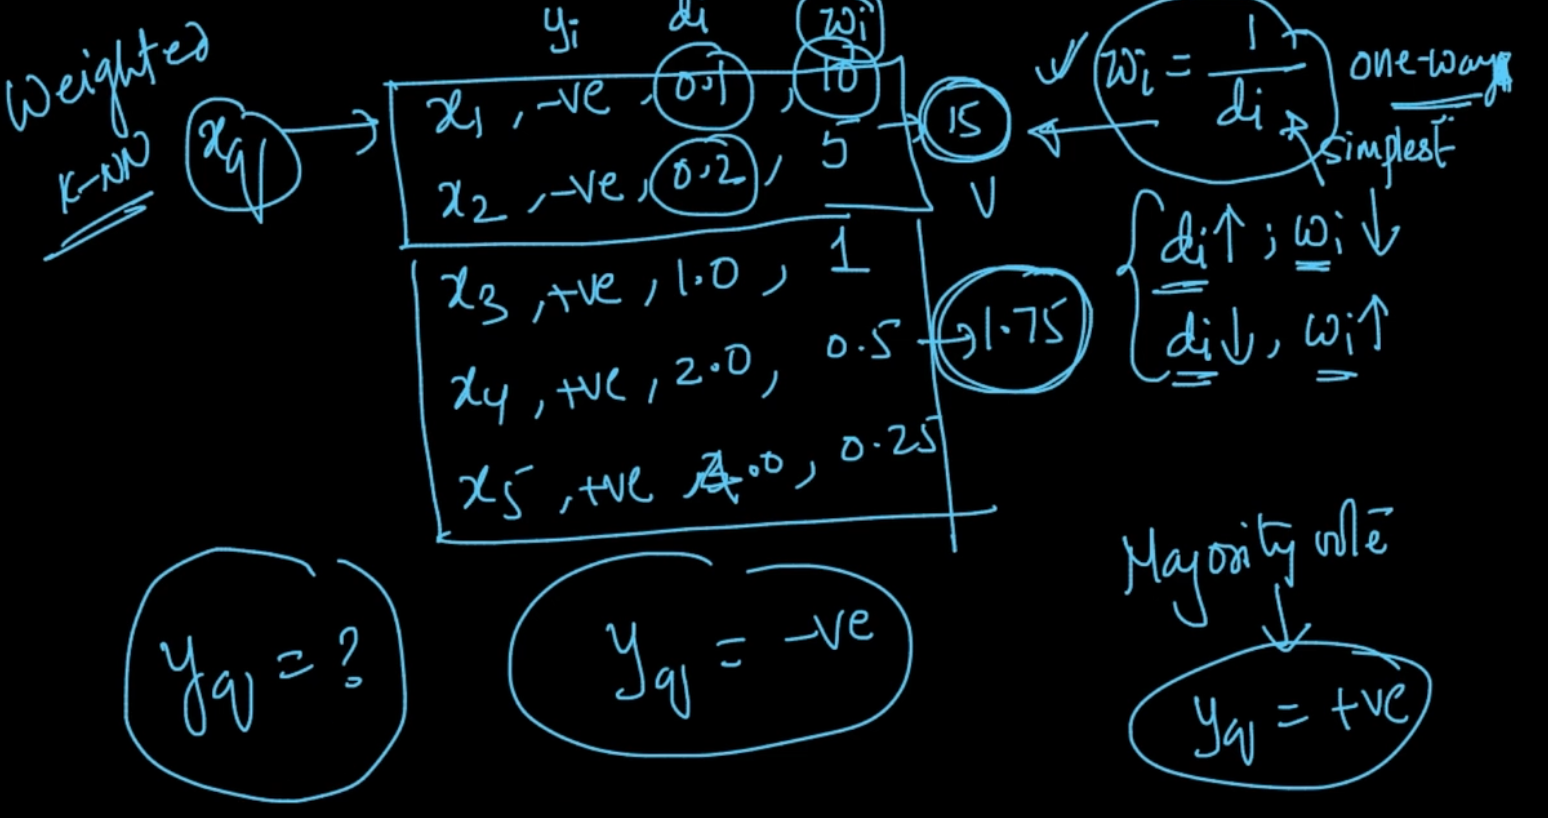 Weighted
K-NN
yi di wi
xq → x1, -ve, 0.1, 10
x2, -ve, 0.2, 5 → 15
x3, +ve, 1.0, 1
x4, +ve, 2.0, 0.5 → 1.75
x5, +ve 4.0, 0.25
✓ wi = 1/di one-way
simplest
V
di↑; wi↓
di↓, wi↑
yq = ?
yq = -ve
Majority vote
↓
yq = +ve